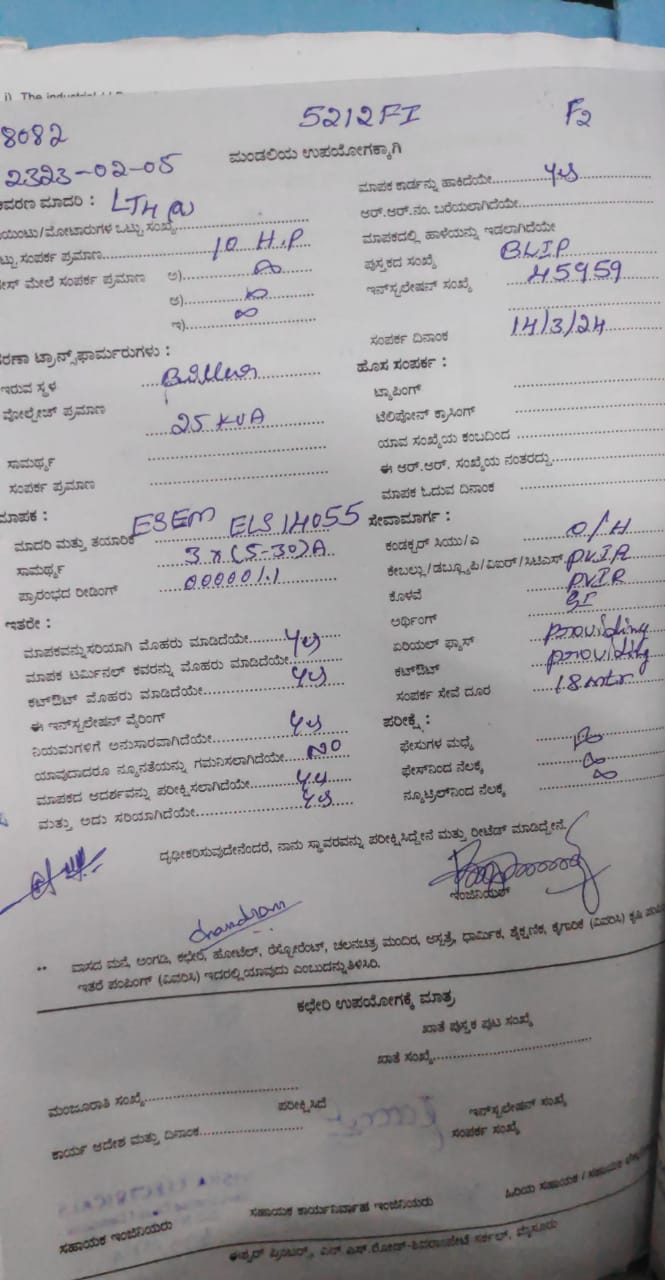 i) The industrial
8082
5212FI
F2
2323-02-05
ಮಂಡಲಿಯ ಉಪಯೋಗಕ್ಕಾಗಿ
ಮಾಪಕ ಕಾರ್ಡನ್ನು ಹಾಕಿದೆಯೇ yes
ಆವರಣ ಮಾದರಿ : LT4 (a)
ಆರ್.ಆರ್.ನಂ. ಬರೆಯಲಾಗಿದೆಯೇ
ಯಿಂಟು/ಮೋಟಾರುಗಳ ಒಟ್ಟು ಸಂಖ್ಯೆ
ಮಾಪಕದಲ್ಲಿ ಹಾಳೆಯನ್ನು ಇಡಲಾಗಿದೆಯೇ
ಟ್ಟು ಸಂಪರ್ಕ ಪ್ರಮಾಣ 10 H.P
ಪುಸ್ತಕದ ಸಂಖ್ಯೆ BLIP
ಮೇಲೆ ಸಂಪರ್ಕ ಪ್ರಮಾಣ ಅ)
ಇನ್‌ಸ್ಟಲೇಷನ್ ಸಂಖ್ಯೆ 45959
ಆ)
ಇ)
ಸಂಪರ್ಕ ದಿನಾಂಕ 14/3/24
ರಣಾ ಟ್ರಾನ್ಸ್‌ಫಾರ್ಮರುಗಳು :
ಹೊಸ ಸಂಪರ್ಕ :
ಇರುವ ಸ್ಥಳ
ಟ್ಯಾಪಿಂಗ್
ವೋಲ್ಟೇಜ್ ಪ್ರಮಾಣ 25 KVA
ಟೆಲಿಪೋನ್ ಕ್ರಾಸಿಂಗ್
ಯಾವ ಸಂಖ್ಯೆಯ ಕಂಬದಿಂದ
ಸಾಮರ್ಥ್ಯ
ಈ ಆರ್.ಆರ್. ಸಂಖ್ಯೆಯ ನಂತರದ್ದು
ಸಂಪರ್ಕ ಪ್ರಮಾಣ
ಮಾಪಕ ಓದುವ ದಿನಾಂಕ
ಮಾಪಕ :
ಸೇವಾಮಾರ್ಗ :
ಮಾದರಿ ಮತ್ತು ತಯಾರಿಕೆ ESEM ELS 14055
ಕಂಡಕ್ಟರ್ ಸಿಯು/ಎ O/H
ಸಾಮರ್ಥ್ಯ 3x(5-30)A
ಕೇಬಲ್ಲು/ಡಬ್ಲ್ಯೂಪಿ/ವಿಐರ್/ಸಿಟಿಎಸ್ PVIR
ಪ್ರಾರಂಭದ ರೀಡಿಂಗ್ 00000/1.1
ಕೊಳವೆ PVIR
ಇತರೇ :
ಅರ್ಥಿಂಗ್ GI
ಮಾಪಕವನ್ನು ಸರಿಯಾಗಿ ಮೊಹರು ಮಾಡಿದೆಯೇ yes
ಏರಿಯಲ್ ಫ್ಯೂಸ್ providing
ಮಾಪಕ ಟರ್ಮಿನಲ್ ಕವರನ್ನು ಮೊಹರು ಮಾಡಿದೆಯೇ
ಕಟ್‌ಔಟ್ providing
ಕಟ್‌ಔಟ್ ಮೊಹರು ಮಾಡಿದೆಯೇ yes
ಸಂಪರ್ಕ ಸೇವೆ ದೂರ 18 mtr
ಈ ಇನ್‌ಸ್ಟಲೇಷನ್ ವೈರಿಂಗ್
ಪರೀಕ್ಷೆ :
ನಿಯಮಗಳಿಗೆ ಅನುಸಾರವಾಗಿದೆಯೇ yes
ಫೇಸುಗಳ ಮಧ್ಯೆ
ಯಾವುದಾದರೂ ನ್ಯೂನತೆಯನ್ನು ಗಮನಿಸಲಾಗಿದೆಯೇ NO
ಫೇಸ್‌ನಿಂದ ನೆಲಕ್ಕೆ
ಮಾಪಕದ ಆದರ್ಶವನ್ನು ಪರೀಕ್ಷಿಸಲಾಗಿದೆಯೇ yes
ನ್ಯೂಟ್ರಲ್‌ನಿಂದ ನೆಲಕ್ಕೆ
ಮತ್ತು ಅದು ಸರಿಯಾಗಿದೆಯೇ yes
ದೃಢೀಕರಿಸುವುದೇನೆಂದರೆ, ನಾನು ಸ್ಥಾವರವನ್ನು ಪರೀಕ್ಷಿಸಿದ್ದೇನೆ ಮತ್ತು ರೀಟೆಡ್ ಮಾಡಿದ್ದೇನೆ.
ಇಂಜಿನಿಯರ್
chandran
** ವಾಸದ ಮನೆ, ಅಂಗಡಿ, ಕಛೇರಿ, ಹೋಟೆಲ್, ರೆಸ್ಟೋರೆಂಟ್, ಚಲನಚಿತ್ರ ಮಂದಿರ, ಆಸ್ಪತ್ರೆ, ಧಾರ್ಮಿಕ, ಶೈಕ್ಷಣಿಕ, ಕೈಗಾರಿಕೆ (ವಿವರಿಸಿ) ಕೃಷಿ
ಇತರೆ ಪಂಪಿಂಗ್ (ವಿವರಿಸಿ) ಇದರಲ್ಲಿ ಯಾವುದು ಎಂಬುದನ್ನು ತಿಳಿಸಿರಿ.
ಕಛೇರಿ ಉಪಯೋಗಕ್ಕೆ ಮಾತ್ರ
ಖಾತೆ ಪುಸ್ತಕ ಪುಟ ಸಂಖ್ಯೆ
ಖಾತೆ ಸಂಖ್ಯೆ
ಮಂಜೂರಾತಿ ಸಂಖ್ಯೆ
ಪರೀಕ್ಷಿಸಿದೆ
ಇನ್‌ಸ್ಟಲೇಷನ್ ಸಂಖ್ಯೆ
ಕಾರ್ಯ ಆದೇಶ ಮತ್ತು ದಿನಾಂಕ
ಸಂಪರ್ಕ ಸಂಖ್ಯೆ
ಸಹಾಯಕ ಇಂಜಿನಿಯರು
ಸಹಾಯಕ ಕಾರ್ಯನಿರ್ವಾಹ ಇಂಜಿನಿಯರು
ಹಿರಿಯ ಸಹಾಯಕ / ಸಹಾಯಕ
ಈಶ್ವರ್ ಪ್ರಿಂಟರ್ಸ್, ಎನ್ ಎಸ್.ರೋಡ್-ಶಿವರಾಂಪೇಟೆ ಸರ್ಕಲ್, ಮೈಸೂರು